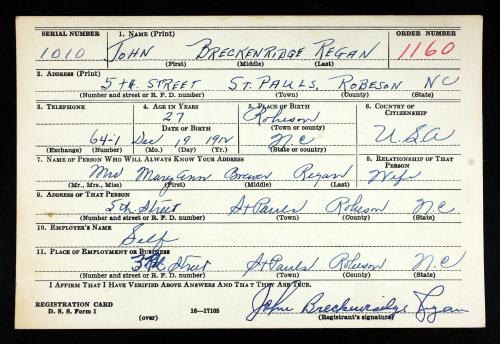 SERIAL NUMBER 1. NAME (Print) ORDER NUMBER
1010 JOHN BRECKENRIDGE REGAN 1160
(First) (Middle) (Last)
2. ADDRESS (Print)
5TH. STREET ST. PAULS, ROBESON NC
(Number and street or R. F. D. number) (Town) (County) (State)
3. TELEPHONE 4. AGE IN YEARS 5. PLACE OF BIRTH 6. COUNTRY OF CITIZENSHIP
27 Robeson
DATE OF BIRTH (Town or county)
64-1 Dec 19 1912 NC U.S.A
(Exchange) (Number) (Mo.) (Day) (Yr.) (State or country)
7. NAME OF PERSON WHO WILL ALWAYS KNOW YOUR ADDRESS 8. RELATIONSHIP OF THAT PERSON
Mrs Mary Ann Brewer Regan Wife
(Mr., Mrs., Miss) (First) (Middle) (Last)
9. ADDRESS OF THAT PERSON
5th Street St Pauls Robeson N.C
(Number and street or R. F. D. number) (Town) (County) (State)
10. EMPLOYER'S NAME
Self
11. PLACE OF EMPLOYMENT OR BUSINESS
5th Street St Pauls Robeson N.C
(Number and street or R. F. D. number) (Town) (County) (State)
I AFFIRM THAT I HAVE VERIFIED ABOVE ANSWERS AND THAT THEY ARE TRUE.
John Breckenridge Regan
REGISTRATION CARD
D. S. S. Form 1 (over) 16—17105 (Registrant's signature)